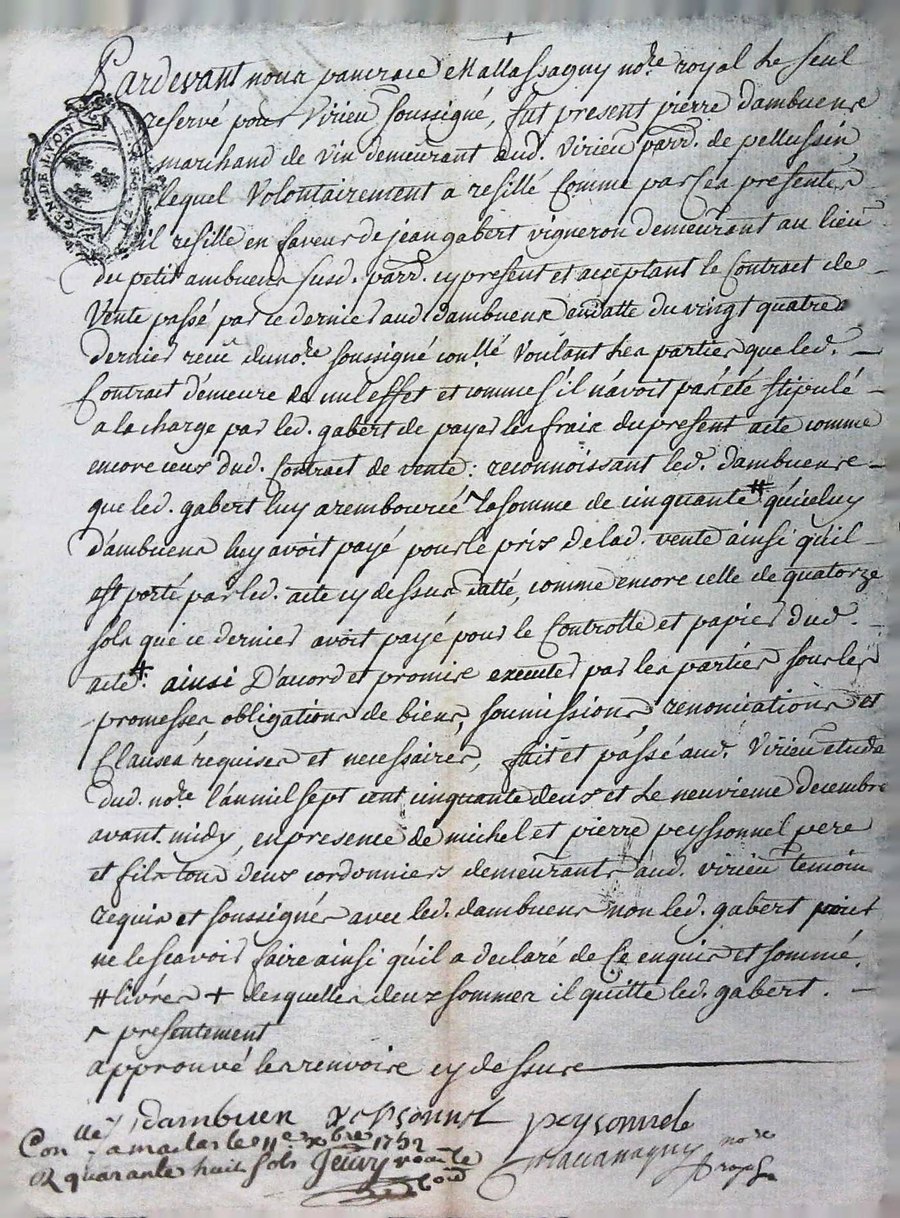 Pardevant nous pancrace Mallassagny no.re royal Le Seul
reservé pour Virieu soussigné, fut present pierre dambuens
marchand de vin demeurant aud. Virieu parr. de pellussin
GEN. DE LYON
lequel Volontairement a resillé Comme par Ces presentes
il resille en faveur de jean gabert vigneron demeurant au lieu
du petit ambuens susd. parr. cy present et acceptant le Contract de
Vente passé par ce dernier aud. dambuens en datte du vingt quatre
dernier receu du no.re soussigné con.llé Voulant Les parties que led.
Contract demeure de nul effet et comme s'il n'avoit pas été stipulé
a la charge par led. gabert de payer les frais du present acte comme
encore ceux dud. Contract de vente : reconnoissant led. dambuens
que led. gabert luy a remboursé ^ la somme de cinquante # qu'iceluy
dambuens luy avoit payé pour le prix de lad. vente ainsi qu'il
est porté par led. acte cy dessus datté, comme encore celle de quatorze
sols que ce dernier avoit payé pour le Controlle et papier dud.
acte + ainsi D'acord et promis executer par les parties sous les
promesses obligations de biens, soumissions renonciations et
Clauses requises et necessaires, fait et passé aud. Virieu etude
dud. no.re l'an mil sept cent cinquante deux et Le neuvieme decembre
avant midy, en presence de michel et pierre peyssonnel pere
et fils tous deux cordonniers demeurants aud. virieu temoins
requis et soussignés avec led. dambuens non led. gabert pour
ne le scavoir faire ainsi qu'il a declaré de Ce enquis et sommé.
# livres + desquelles deux sommes il quitte led. gabert.
^ presentement
approuvé les renvois cy dessus
dambuen peyssonnel peyssonnel
Con.llé a maclas le 11e xbre 1752 Mallassagny no.re
R quarante huit sols royal